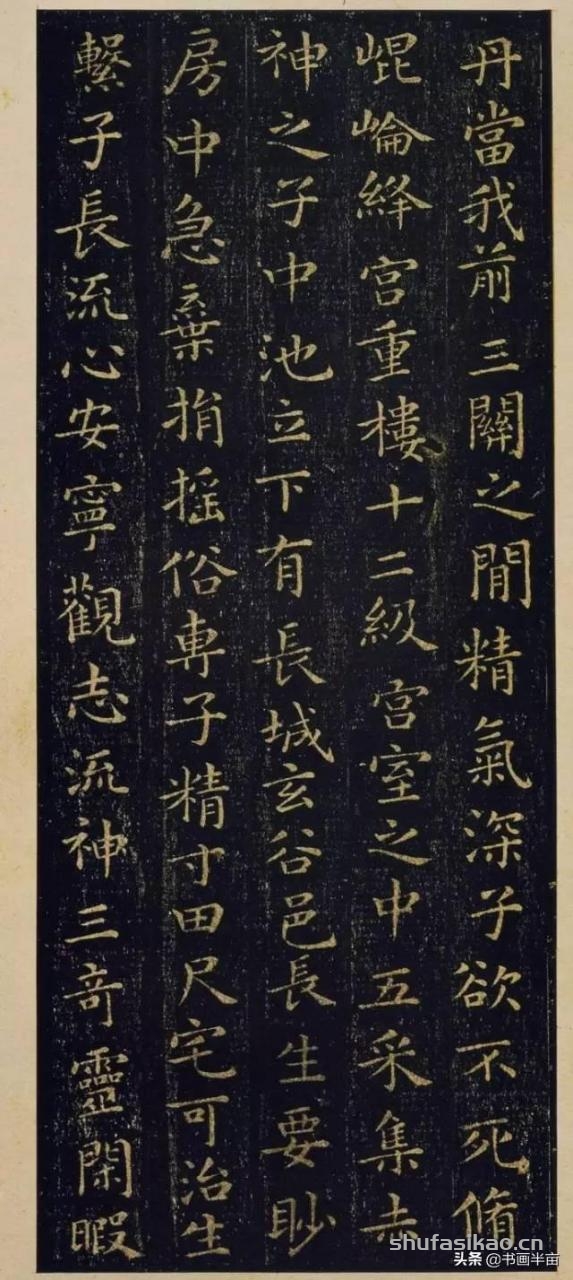 丹當我前三關之閒精氣深子欲不死脩
崐崘絳宮重樓十二級宮室之中五采集赤
神之子中池立下有長城玄谷邑長生要眇
房中急棄捐搖俗専子精寸田尺宅可治生
繫子長流心安寧觀志流神三奇靈閑暇
shufasikao.cn
头条 @书画半亩